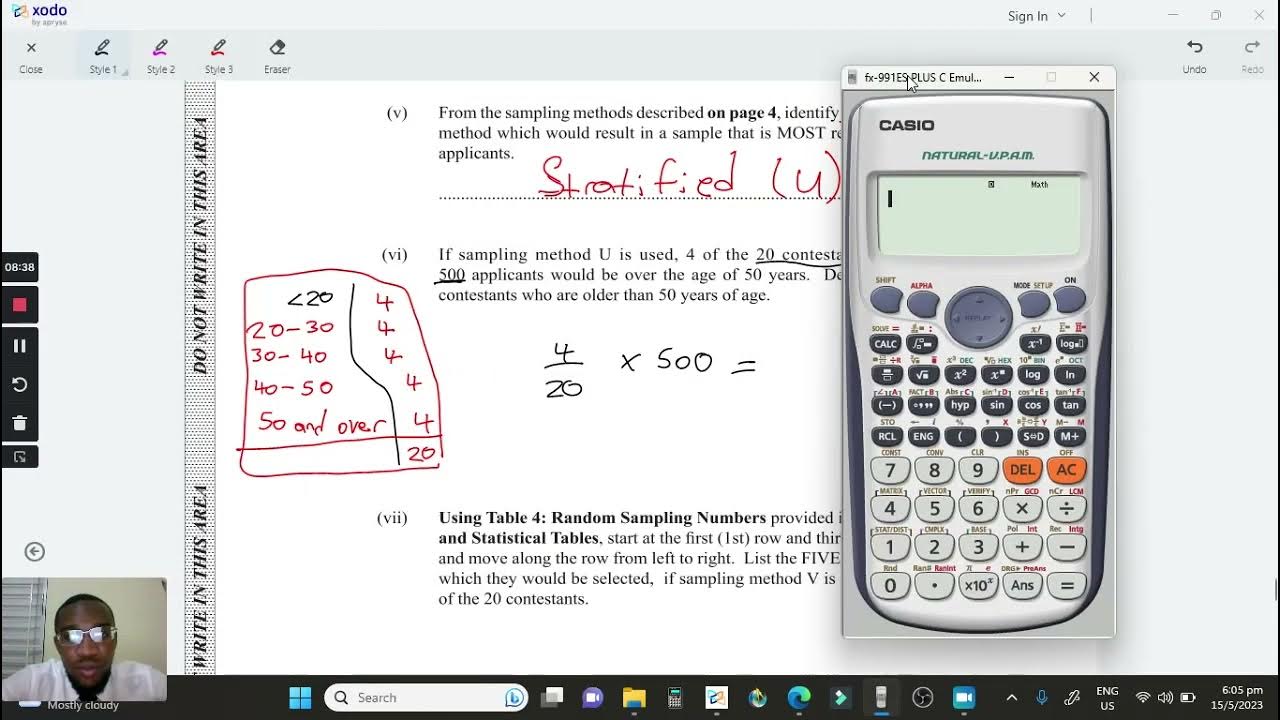 xodo
by apryse
Sign In
Close
Style 1
Style 2
Style 3
Eraser
Undo
Redo
DO NOT WRITE IN THIS AREA
WRITE IN THIS AREA
(v) From the sampling methods described on page 4, identify
method which would result in a sample that is MOST
applicants.
Stratified (U)
(vi) If sampling method U is used, 4 of the 20
500 applicants would be over the age of 50 years.
contestants who are older than 50 years of age.
<20 4
20-30 4
30-40 4
40-50 4
50 and over 4
20
4
20
× 500 =
(vii) Using Table 4: Random Sampling Numbers provided
and Statistical Tables, start at the first (1st) row and
and move along the row from left to right. List the FIVE
which they would be selected, if sampling method V is
of the 20 contestants.
08:38
PLUS C Emul...
CASIO
NATURAL-V.P.A.M.
Math
SHIFT ALPHA MODE SETUP ON
REPLAY
SOLVE =
CALC x⁻¹ log
√ x² log ln
hyp sin cos tan
STO
RCL ENG ( ) S⇔D M+
CONST CONV CLR INS OFF
7 8 9 DEL AC
MATRIX VECTOR VERIFY nPr GCD nCr LCM
4 5 6 × ÷
STAT/DIST CMPLX BASE Pol Int Rec Intg
1 2 3 + −
Rnd Ran# RanInt π e DRG► PreAns
0 . ×10ˣ Ans =
Mostly cloudy
Search
NG
US
6:05 pm
15/5/2023